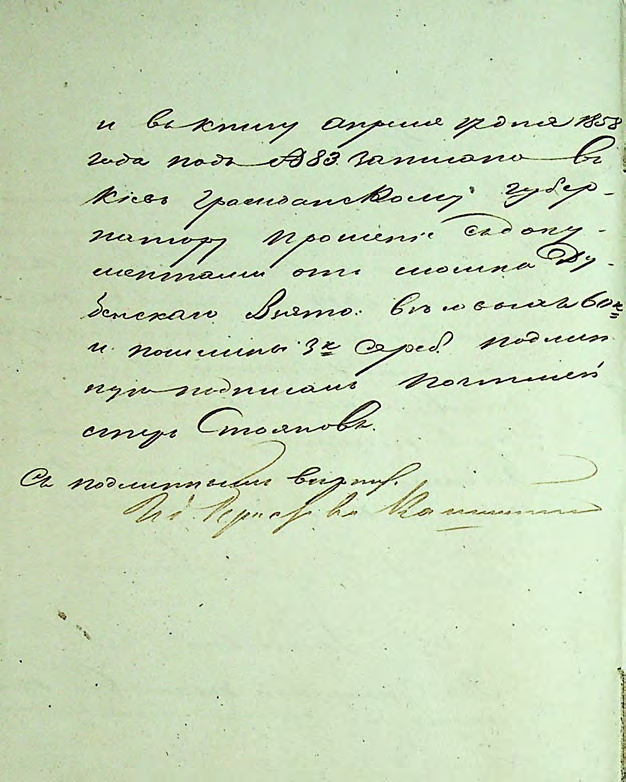 и въ книгу Апреля 17 дня 1858
года подъ № 83. записано въ
Кіевъ Гражданскому Губер-
натору прошеніе съ доку-
ментами отъ Дy-
бенскаго Взято: вѣсовыхъ 60 к
и пошлины 3 к сереб. подлин
ную подписалъ Почтмей
стеръ Стояновъ.
Съ подлиннымъ вѣрно.